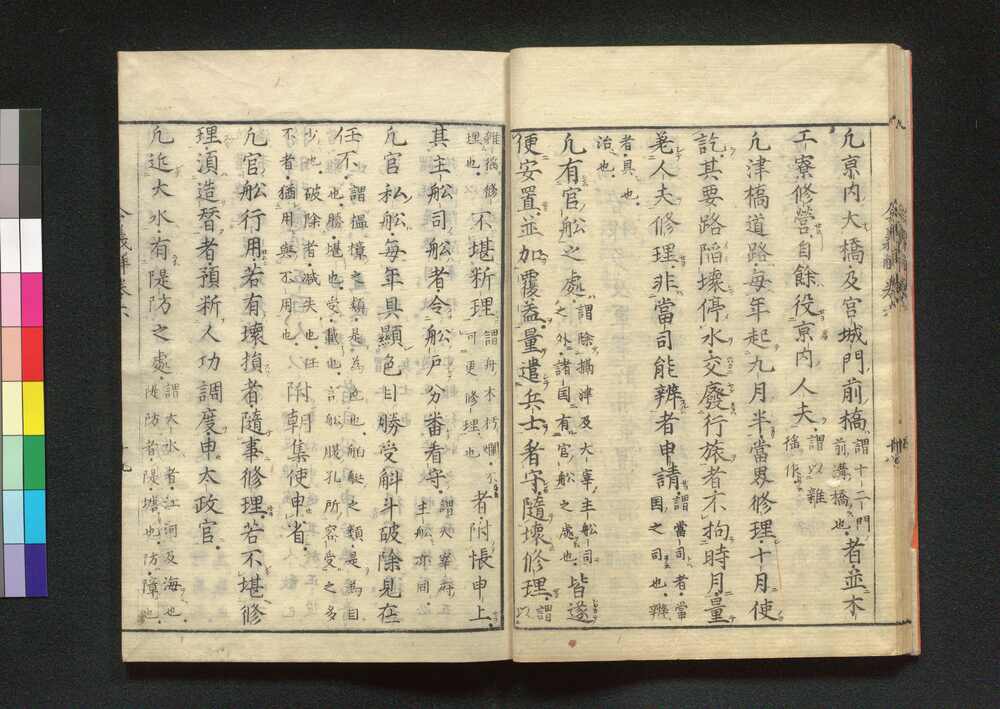 凢京内大橋及宮城門前橋謂十二門前溝橋也者並木
工寮修營自餘役京内人夫謂以雜徭作
凢津橋道路毎年起九月半當界修理十月使
訖其要路陷壞停水交廢行旅者不拘時月量
差人夫修理非當司能辨者申請謂當司者當国之司也辨
者具也治也
凢有官舩之處謂除攝津及大宰主舩司之外諸国有官舩之處也皆逐
便安置並加覆盖量遣兵士者守隨壞修理謂以
雜徭修理也不堪断理謂舟木朽爛不可更修理也者附帳申上
其主舩司舩者令舩戸分番看守謂大宰府主舩亦同
凢官私舩毎年具顯色目勝受斛斗破除見在
任不謂榲樟之類是為色也舶艇之類是為目也勝堪也受載也言舩腹孔所容受之多
少也破除者减失也任不者猶用與不用也附朝集使申省
凢官舩行用若有壞損者隨事修理若不堪修
理須造替者預断人功調度申太政官
凢近大水有隄防之處謂大水者江河及海也隄防者隄塘也防障也
令義解卷六
十九